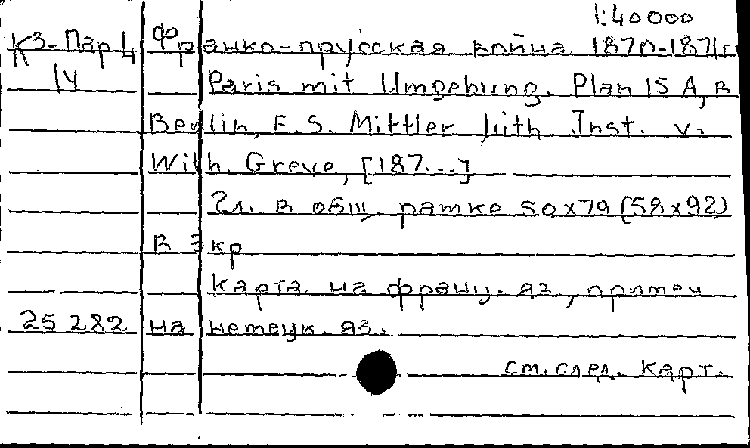 1:40000
К3-Пар 4 Франко-прусская война 1870-1871 г
IV Paris mit Umgebung. Plan 15 A, B
Berlin, E. S. Mittler, Lith. Inst. v.
Wilh. Greve, [187...]
2 л. в общ. рамке 50x79 (58x92)
в кр
Карта на франц. яз., примеч
25 282 на немецк. яз.
см. след. карт.